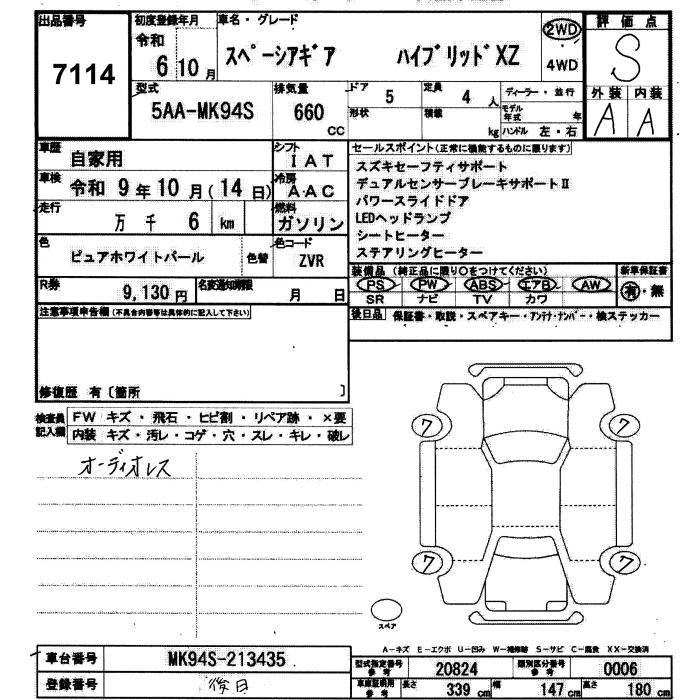 出品番号
7114
初度登録年月
令和 6 10 月
車名・グレード
スペーシアギア ハイブリッドXZ
2WD
4WD
評価点
S
外装 内装
A A
型式
5AA-MK94S
排気量
660 CC
ドア 5
形状
定員 4 人
積載 kg
ディーラー・並行
モデル年式 年
ハンドル 左・右
車歴 自家用
シフト IAT
車検 令和 9 年 10 月(14 日)
冷房 AAC
走行 万 千 6 km
燃料 ガソリン
色 ピュアホワイトパール 色替
色コード ZVR
R券 9,130 円
名変通知期限 月 日
セールスポイント(正常に機能するものに限ります)
スズキセーフティサポート
デュアルセンサーブレーキサポートⅡ
パワースライドドア
LEDヘッドランプ
シートヒーター
ステアリングヒーター
装備品 (純正品に限り○をつけてください)
PS PW ABS エアB AW
SR ナビ TV カワ
新車保証書
有・無
後日品 保証書・取説・スペアキー・アンテナ・ナンバー・検ステッカー
注意事項申告欄(不具合内容等は具体的に記入して下さい)
修復歴 有〔箇所 〕
検査員記入欄
FW キズ・飛石・ヒビ割・リペア跡・×要
内装 キズ・汚レ・コゲ・穴・スレ・キレ・破レ
オーディオレス
7 7
7 7
スペア
A-キズ E-エクボ U-凹み W-補修跡 S-サビ C-腐食 XX-交換済
車台番号 MK94S-213435
登録番号 後日
型式指定番号 参考 20824
類別区分番号 参考 0006
車庫証明用 参考 長さ 339 cm 幅 147 cm 高さ 180 cm